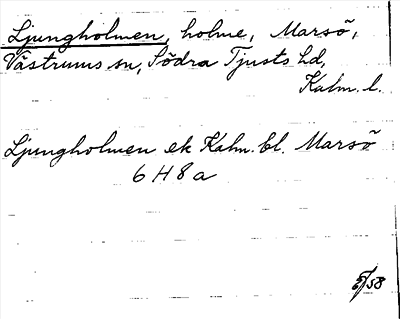 Ljungholmen, holme, Marsö,
Västrums sn, Södra Tjusts hd,
Kalm. l.
Ljungholmen ek Kalm. bl. Marsö
6 H 8 a
/58